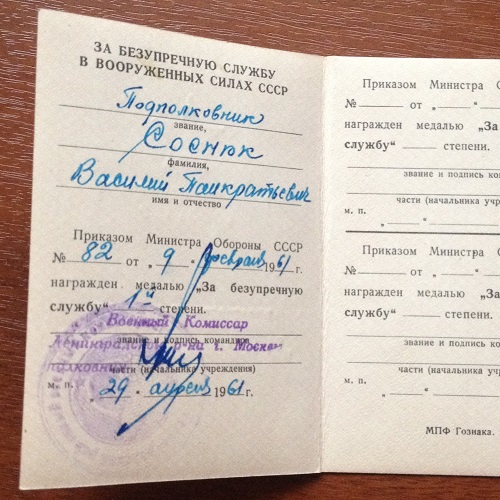 ЗА БЕЗУПРЕЧНУЮ СЛУЖБУ
В ВООРУЖЕННЫХ СИЛАХ СССР
Подполковник
звание,
Соснюк
фамилия,
Василий Панкратьевич
имя и отчество
Приказом Министра Обороны СССР
№ 82 от „ 9 “ февраля 1961 г.
награжден медалью „За безупречную
службу“ 1й степени.
Военный Комиссар
звание и подпись командира
Ленинградского р-на г. Москвы
подполковник
части (начальника учреждения)
м. п. „ 29 “ апреля 1961 г.
Приказом Министра
№ от „ “
награжден медалью „За
службу“ степени.
звание и подпись
части (начальника
м. п. „ “
Приказом Министра
№ от „ “
награжден медалью „За
службу“ степени.
звание и подпись
части (начальника
м. п. „ “
МПФ Гознака.